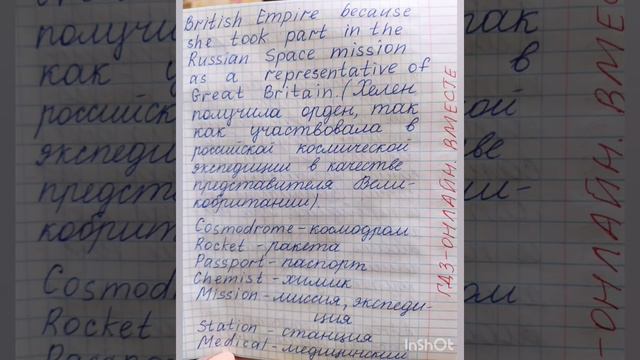 British Empire because
she took part in the
Russian Space mission
as a representative of
Great Britain. (Хелен
получила орден, так
как участвовала в
российской космической
экспедиции в качестве
представителя Вели-
кобритании).
Cosmodrome - космодром
Rocket - ракета
Passport - паспорт
Chemist - химик
Mission - миссия, экспеди-
ция
Station - станция
Medical - медицинский
ГДЗ-ОНЛАЙН. ВМЕСТЕ
InShOt